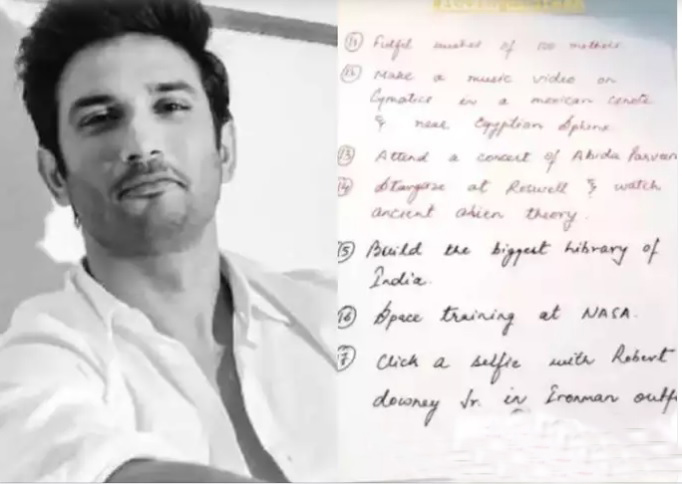 (11) Fulfil wishes of 100 mothers
(12) Make a music video on
Cymatics in a mexican cenote
& near Egyptian Sphinx.
(13) Attend a concert of Abida Parveen
(14) Stargaze at Roswell & watch
ancient alien theory.
(15) Build the biggest library of
India.
(16) Space training at NASA.
(17) Click a selfie with Robert
downey Jr. in Ironman outf